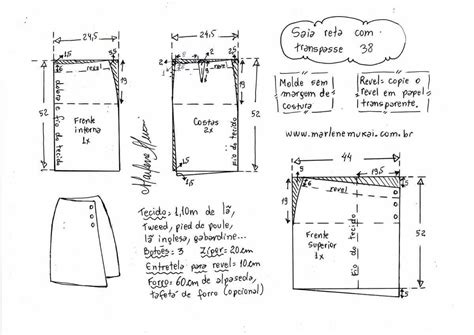 Saia reta com
transpasse 38
Molde sem
margem de
costura
Revel: copie o
revel em papel
transparente.
www.marlenemukai.com.br
24,5
1,5
3,5
revel
19
52
dobra e fio do tecido
Frente
interna
1x
24,5
1,5
2
2,5
8
19
52
Costas
2x
fio do tecido
Marlene Mukai
44
13,5
6
revel
19
52
Frente
Superior
1x
fio do tecido
Tecido: 1,10m de lã,
Tweed, pied de poule,
lã inglesa, gabardine...
Botões: 3 Zíper: 20cm
Entretela para revel: 10cm
Forro: 60cm de alpaseda,
tafetá de forro (opcional)